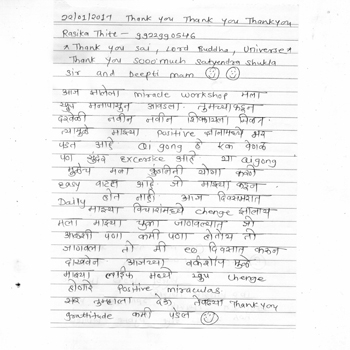 22/01/2017 Thank you Thank you Thankyou
Rasika Thite - 9922990546
* Thank you sai, Lord Buddha, Universe *
Thank you sooo much Satyendra Shukla
sir and Deepti mam
आज झालेला miracle workshop मला
खूप मनापासून आवडला. तुमच्या कडून
दरवेळी नवीन नवीन शिकायला मिळत.
त्यामुळे माझ्या positive ज्ञानामध्ये भर
पडत आहे Qi gong हे एक वेगळे
पण सुंदर excersice आहे या Qigong
मुळेच मला करणे
easy वाटत आहे जो माझ्या कडून
Daily होत नाही आज दिवसभरात
माझ्या विचारांमध्ये chenge झालाय
मला माझ्या जाणवल्यात जो
कमी पणा होता तो मी
जाणवला तो मी २१ दिवसात करून
दाखवेन आजच्या वर्कशॉप मुळे
माझ्या लाईफ मध्ये खूप chenge
होणारे positive miraculas
सर तुम्हाला देऊ तेवढ्या Thank you
grattitude कमी पडेल